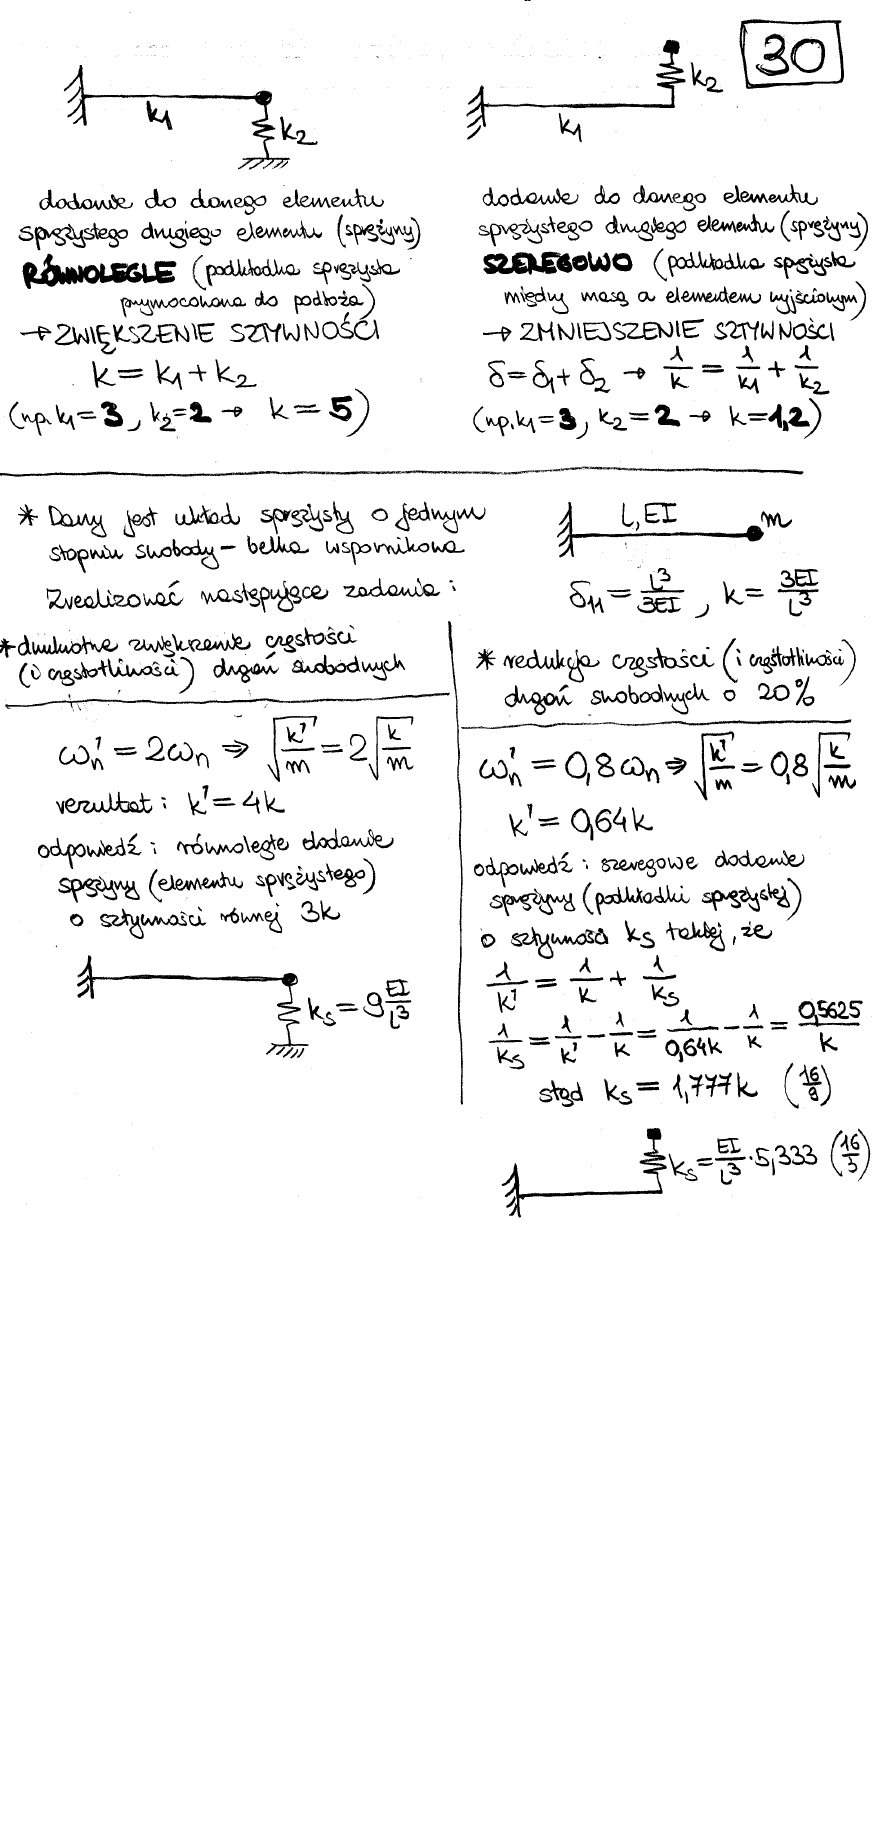 30
k₁
k₂
dodanie do danego elementu
sprężystego drugiego elementu (sprężyny)
RÓWNOLEGLE (podkładka sprężysta
przymocowana do podłoża)
→ ZWIĘKSZENIE SZTYWNOŚCI
k = k₁ + k₂
(np. k₁ = 3, k₂ = 2 → k = 5)
k₁
k₂
dodanie do danego elementu
sprężystego drugiego elementu (sprężyny)
SZEREGOWO (podkładka sprężysta
między masą a elementem wyjściowym)
→ ZMNIEJSZENIE SZTYWNOŚCI
δ = δ₁ + δ₂ → 1/k = 1/k₁ + 1/k₂
(np. k₁ = 3, k₂ = 2 → k = 1,2)
* Dany jest układ sprężysty o jednym
stopniu swobody – belka wspornikowa
Zrealizować następujące zadania:
l, EI
m
δ₁₁ = l³/3EI, k = 3EI/l³
* dwukrotne zwiększenie częstości
(i częstotliwości) drgań swobodnych
ωn' = 2ωn ⇒ √(k'/m) = 2√(k/m)
rezultat: k' = 4k
odpowiedź: równoległe dodanie
sprężyny (elementu sprężystego)
o sztywności równej 3k
ks = 9 EI/l³
* redukcja częstości (i częstotliwości)
drgań swobodnych o 20%
ωn' = 0,8ωn ⇒ √(k'/m) = 0,8√(k/m)
k' = 0,64k
odpowiedź: szeregowe dodanie
sprężyny (podkładki sprężystej)
o sztywności ks takiej, że
1/k' = 1/k + 1/ks
1/ks = 1/k' − 1/k = 1/0,64k − 1/k = 0,5625/k
stąd ks = 1,777k (16/9)
ks = EI/l³ · 5,333 (16/3)